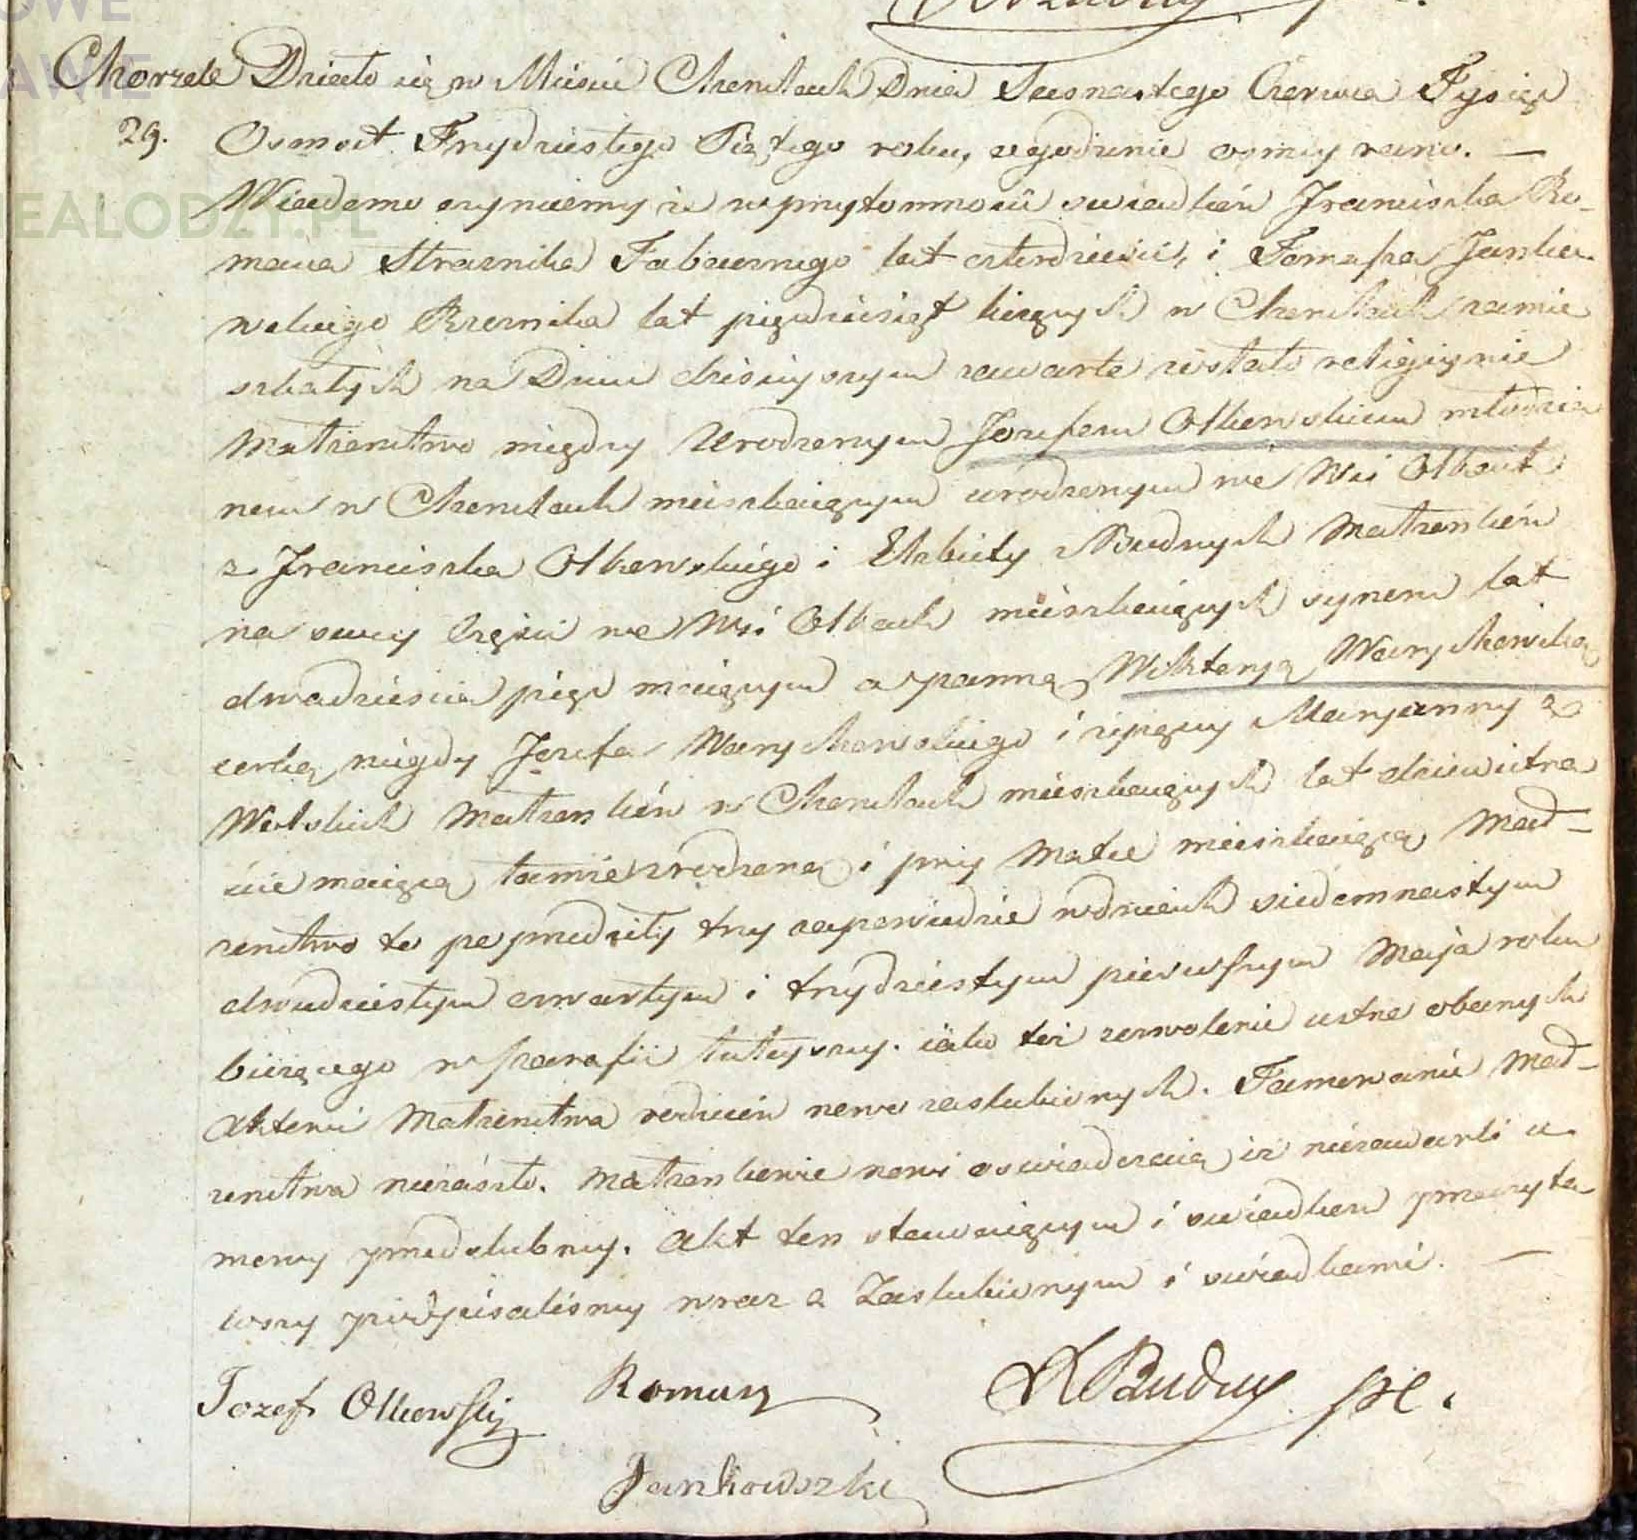 OWE
AWIE
EALODZY.PL
Chorzele Działo się w Mieście Chorzelach Dnia Szesnastego Czerwca Tysiąc
29. Osmset Trzydziestego Piątego roku, o godzinie osmey rano. —
Wiadomo czyniemy iż w przytomności swiadków Franciszka Ro-
mana Straznika Tabacznego lat czterdzieści, i Tomasza Janko-
wskiego Rzeznika lat pięćdziesiąt liczących w Chorzelach zamie
szkałych na Dniu dzisieyszym zawarte zostało religiynie
Małzenstwo między Urodzonym Jozefem Olkowskiem młodzia
nem w Chorzelach mieszkaiącym urodzonym we Wsi Olkach
z Franciszka Olkowskiego i Elzbiety z Budnych Małzonków
na swey Części we Wsi Olkach mieszkaiących synem lat
dwadziescia pięć maiącym a panną Wiktoryą Warychowską
corką niegdy Jozefa Warychowskiego i zyiącey Maryanny z
Wolskich Małzonków w Chorzelach mieszkaiących lat dziewietna
scie maiącą tamże zrodzoną i przy Matce mieszkaiącą Mał-
zenstwo to poprzedziły trzy zapowiedzie w dniach siedemnastym
dwudziestym czwartym i trzydziestym pierwszym Maja roku
biezącego w Parafii tuteyszey. iako też zezwolenie ustne obecnych
Aktowi Małzenstwa rodziców nowo zaslubionych. Tamowanie Mał-
zenstwa niezaszło. Małzonkowie nowi oswiadczaią iż niezawarli u
mowy przedslubney. Akt ten stawaiącym i swiadkom przeczyta
wszy podpisalismy wraz z Zaslubionym i swiadkami. —
Jozef Olkowski Roman Budny
Jankowszki